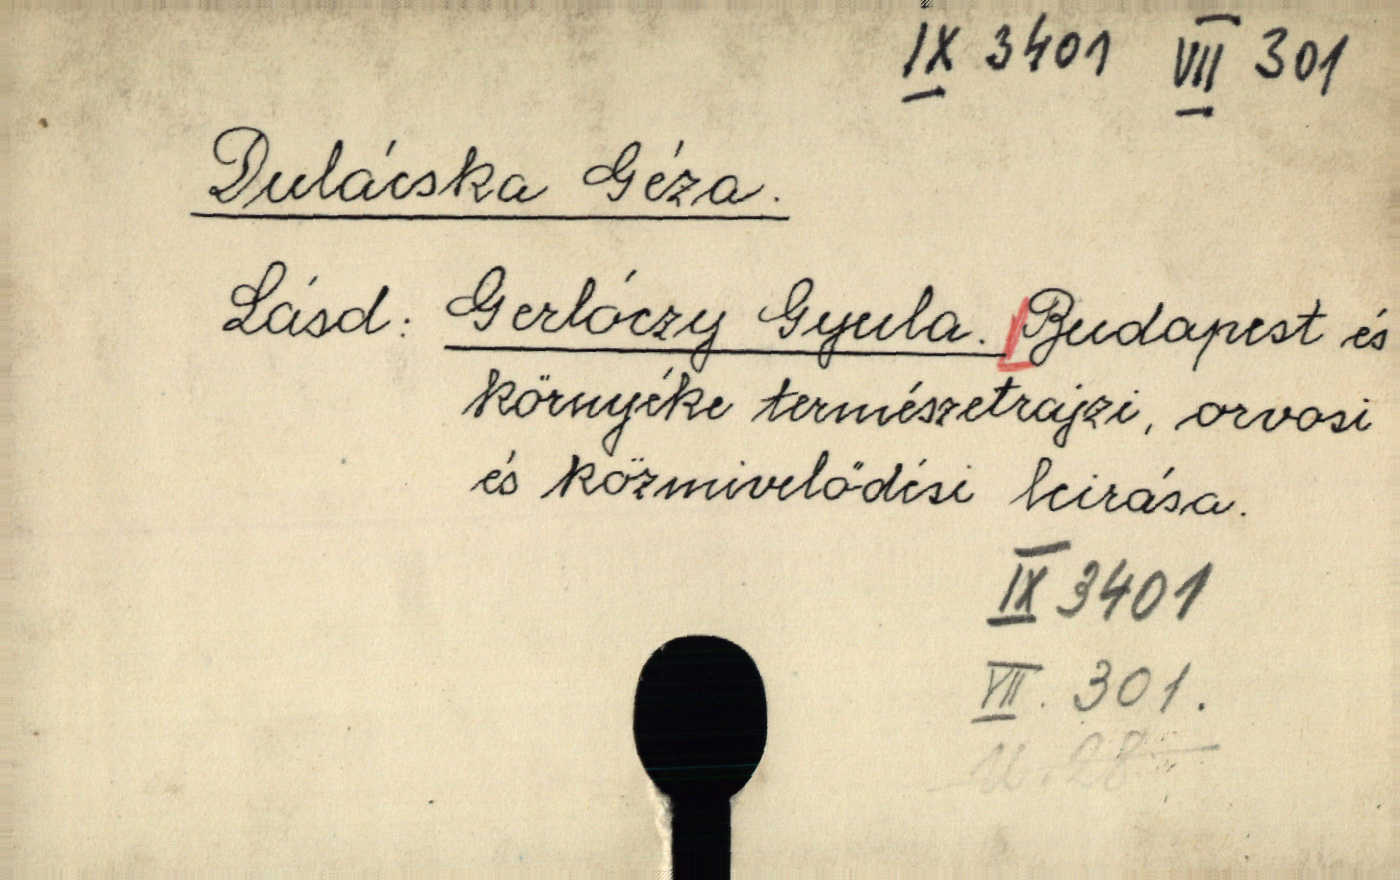 IX 3401 VII 301
Dulácska Géza.
Lásd: Gerlóczy Gyula. Budapest és
környéke természetrajzi, orvosi
és közmivelődési leirása.
IX 3401
VII. 301.